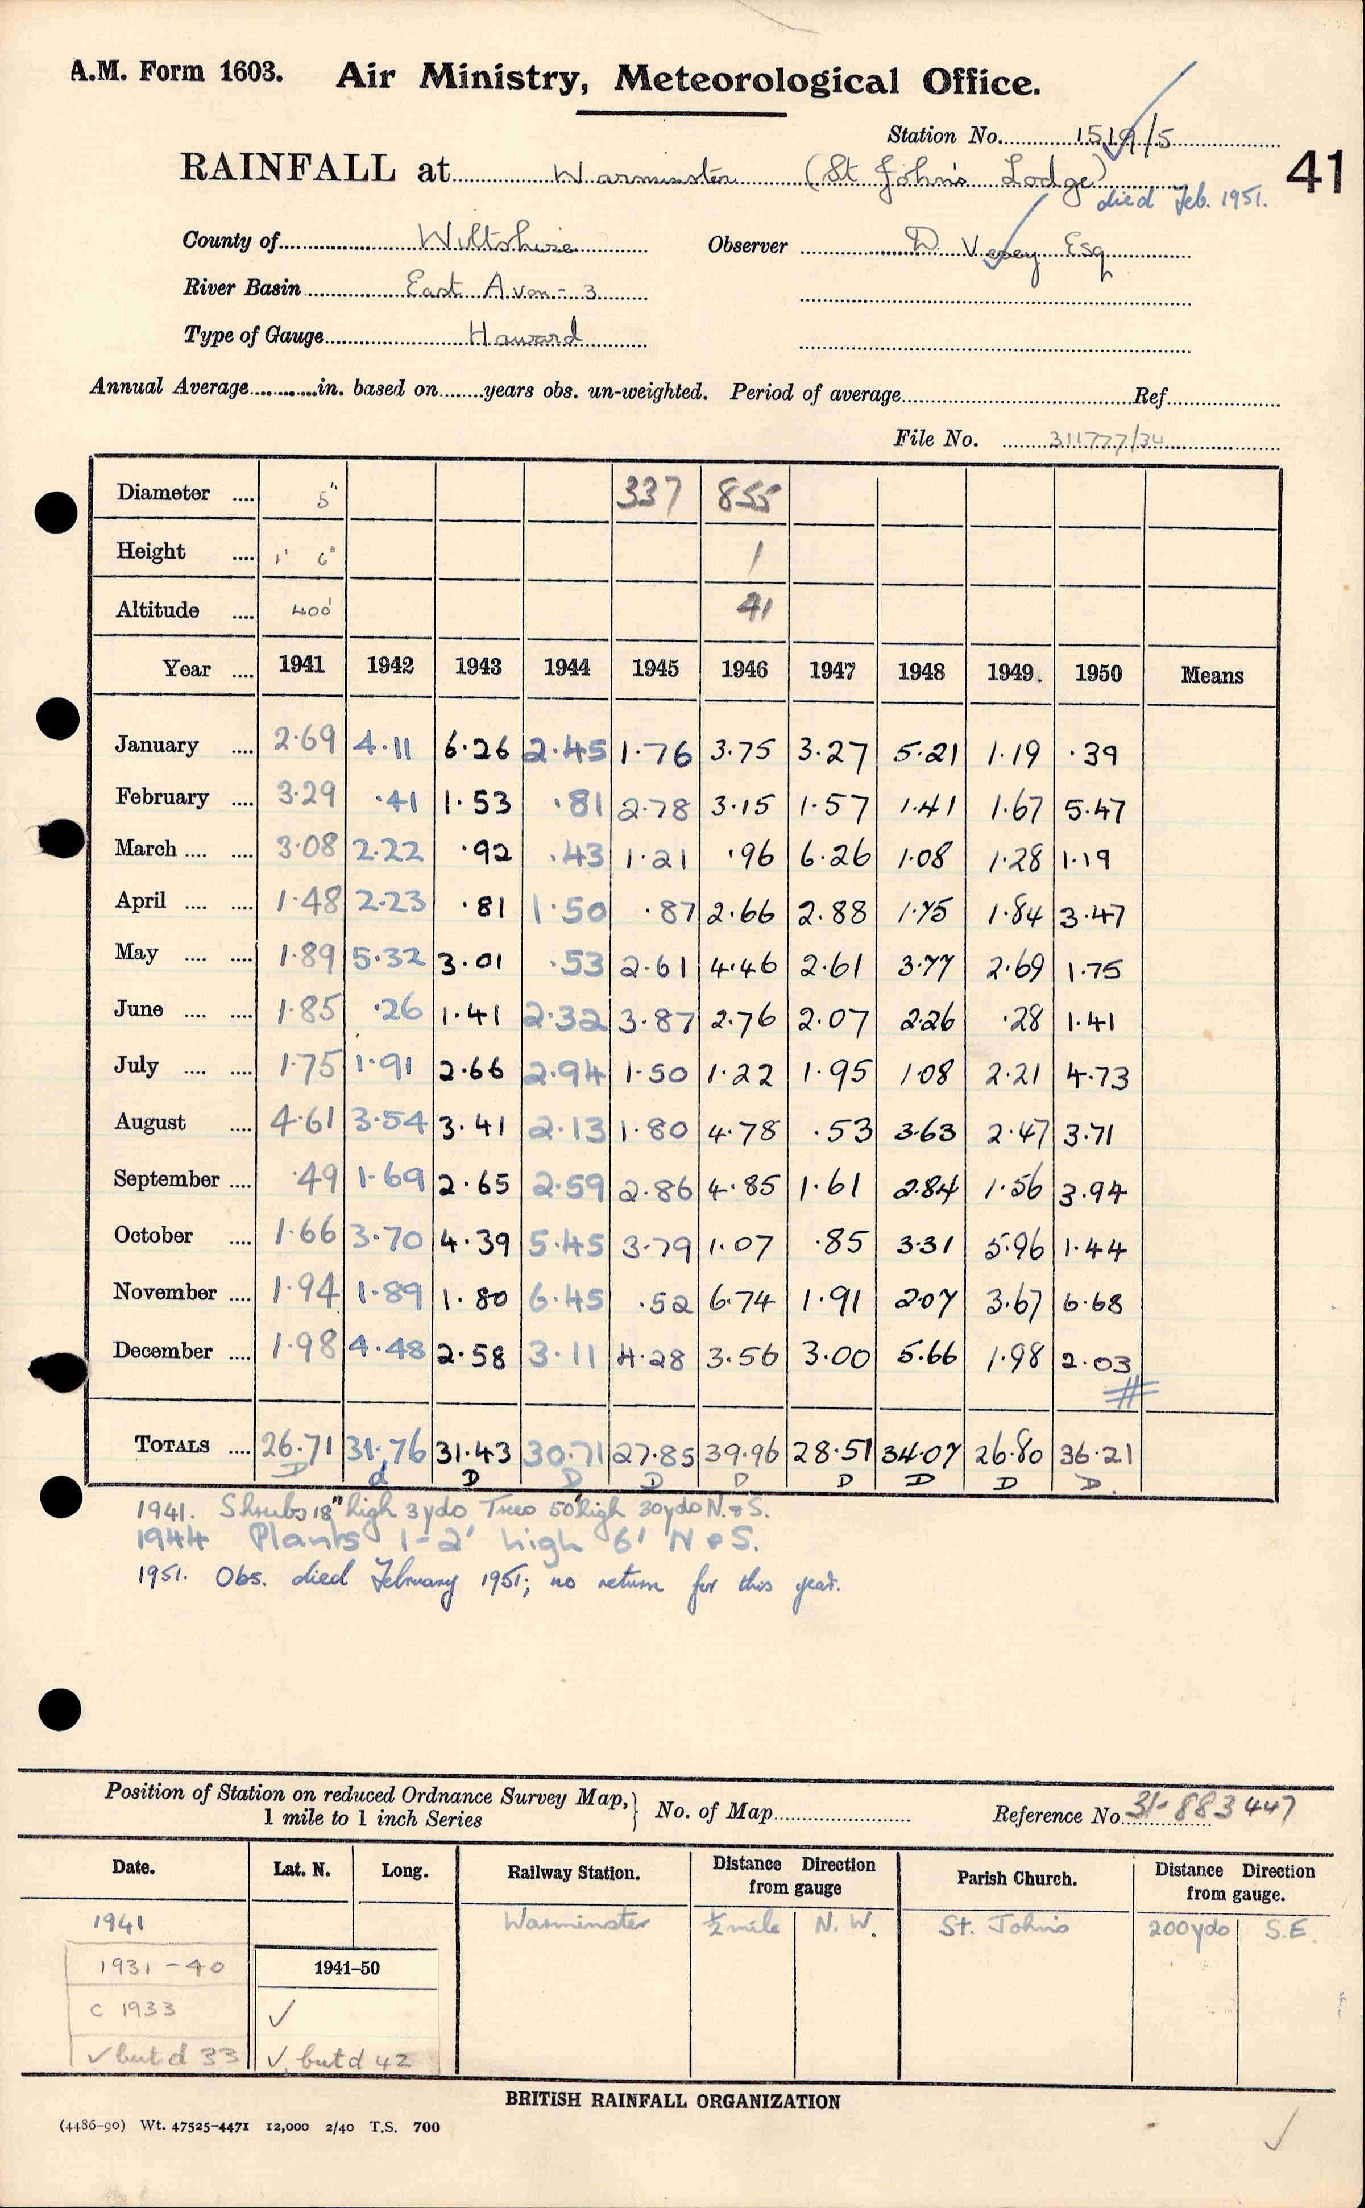 A.M. Form 1603. Air Ministry, Meteorological Office.
Station No. 1519/5
RAINFALL at Warminster (St John's Lodge) 41
died Feb. 1951.
County of Wiltshire Observer D. Verey Esq
River Basin East Avon - 3
Type of Gauge Howard
Annual Average in. based on years obs. un-weighted. Period of average Ref
File No. 311777/34
Diameter 5" 337 855
Height 1' 0" 1
Altitude 400' 41
Year 1941 1942 1943 1944 1945 1946 1947 1948 1949. 1950 Means
January 2.69 4.11 6.26 2.45 1.76 3.75 3.27 5.21 1.19 .39
February 3.29 .41 1.53 .81 2.78 3.15 1.57 1.41 1.67 5.47
March 3.08 2.22 .92 .43 1.21 .96 6.26 1.08 1.28 1.19
April 1.48 2.23 .81 1.50 .87 2.66 2.88 1.75 1.84 3.47
May 1.89 5.32 3.01 .53 2.61 4.46 2.61 3.77 2.69 1.75
June 1.85 .26 1.41 2.32 3.87 2.76 2.07 2.26 .28 1.41
July 1.75 1.91 2.66 2.94 1.50 1.22 1.95 1.08 2.21 4.73
August 4.61 3.54 3.41 2.13 1.80 4.78 .53 3.63 2.47 3.71
September .49 1.69 2.65 2.59 2.86 4.85 1.61 2.84 1.56 3.94
October 1.66 3.70 4.39 5.45 3.79 1.07 .85 3.31 5.96 1.44
November 1.94 1.89 1.80 6.45 .52 6.74 1.91 2.07 3.67 6.68
December 1.98 4.48 2.58 3.11 4.28 3.56 3.00 5.66 1.98 2.03
TOTALS 26.71 31.76 31.43 30.71 27.85 39.96 28.51 34.07 26.80 36.21
D d D D D D D D D D.
1941. Shrubs 18" high 3 yds Trees 50' high 30 yds N. & S.
1944 Plants 1-2' high 6' N & S.
1951. Obs. died February 1951; no return for this year.
Position of Station on reduced Ordnance Survey Map,
1 mile to 1 inch Series
No. of Map Reference No 31-883447
Date. Lat. N. Long. Railway Station. Distance Direction from gauge Parish Church. Distance Direction from gauge.
1941 Warminster ½ mile N.W. St. John's 200 yds S.E.
1931-40 1941-50
c 1933 ✓
✓ but d 33 ✓ but d 42
BRITISH RAINFALL ORGANIZATION
(4486-90) Wt. 47525-4471 12,000 2/40 T.S. 700